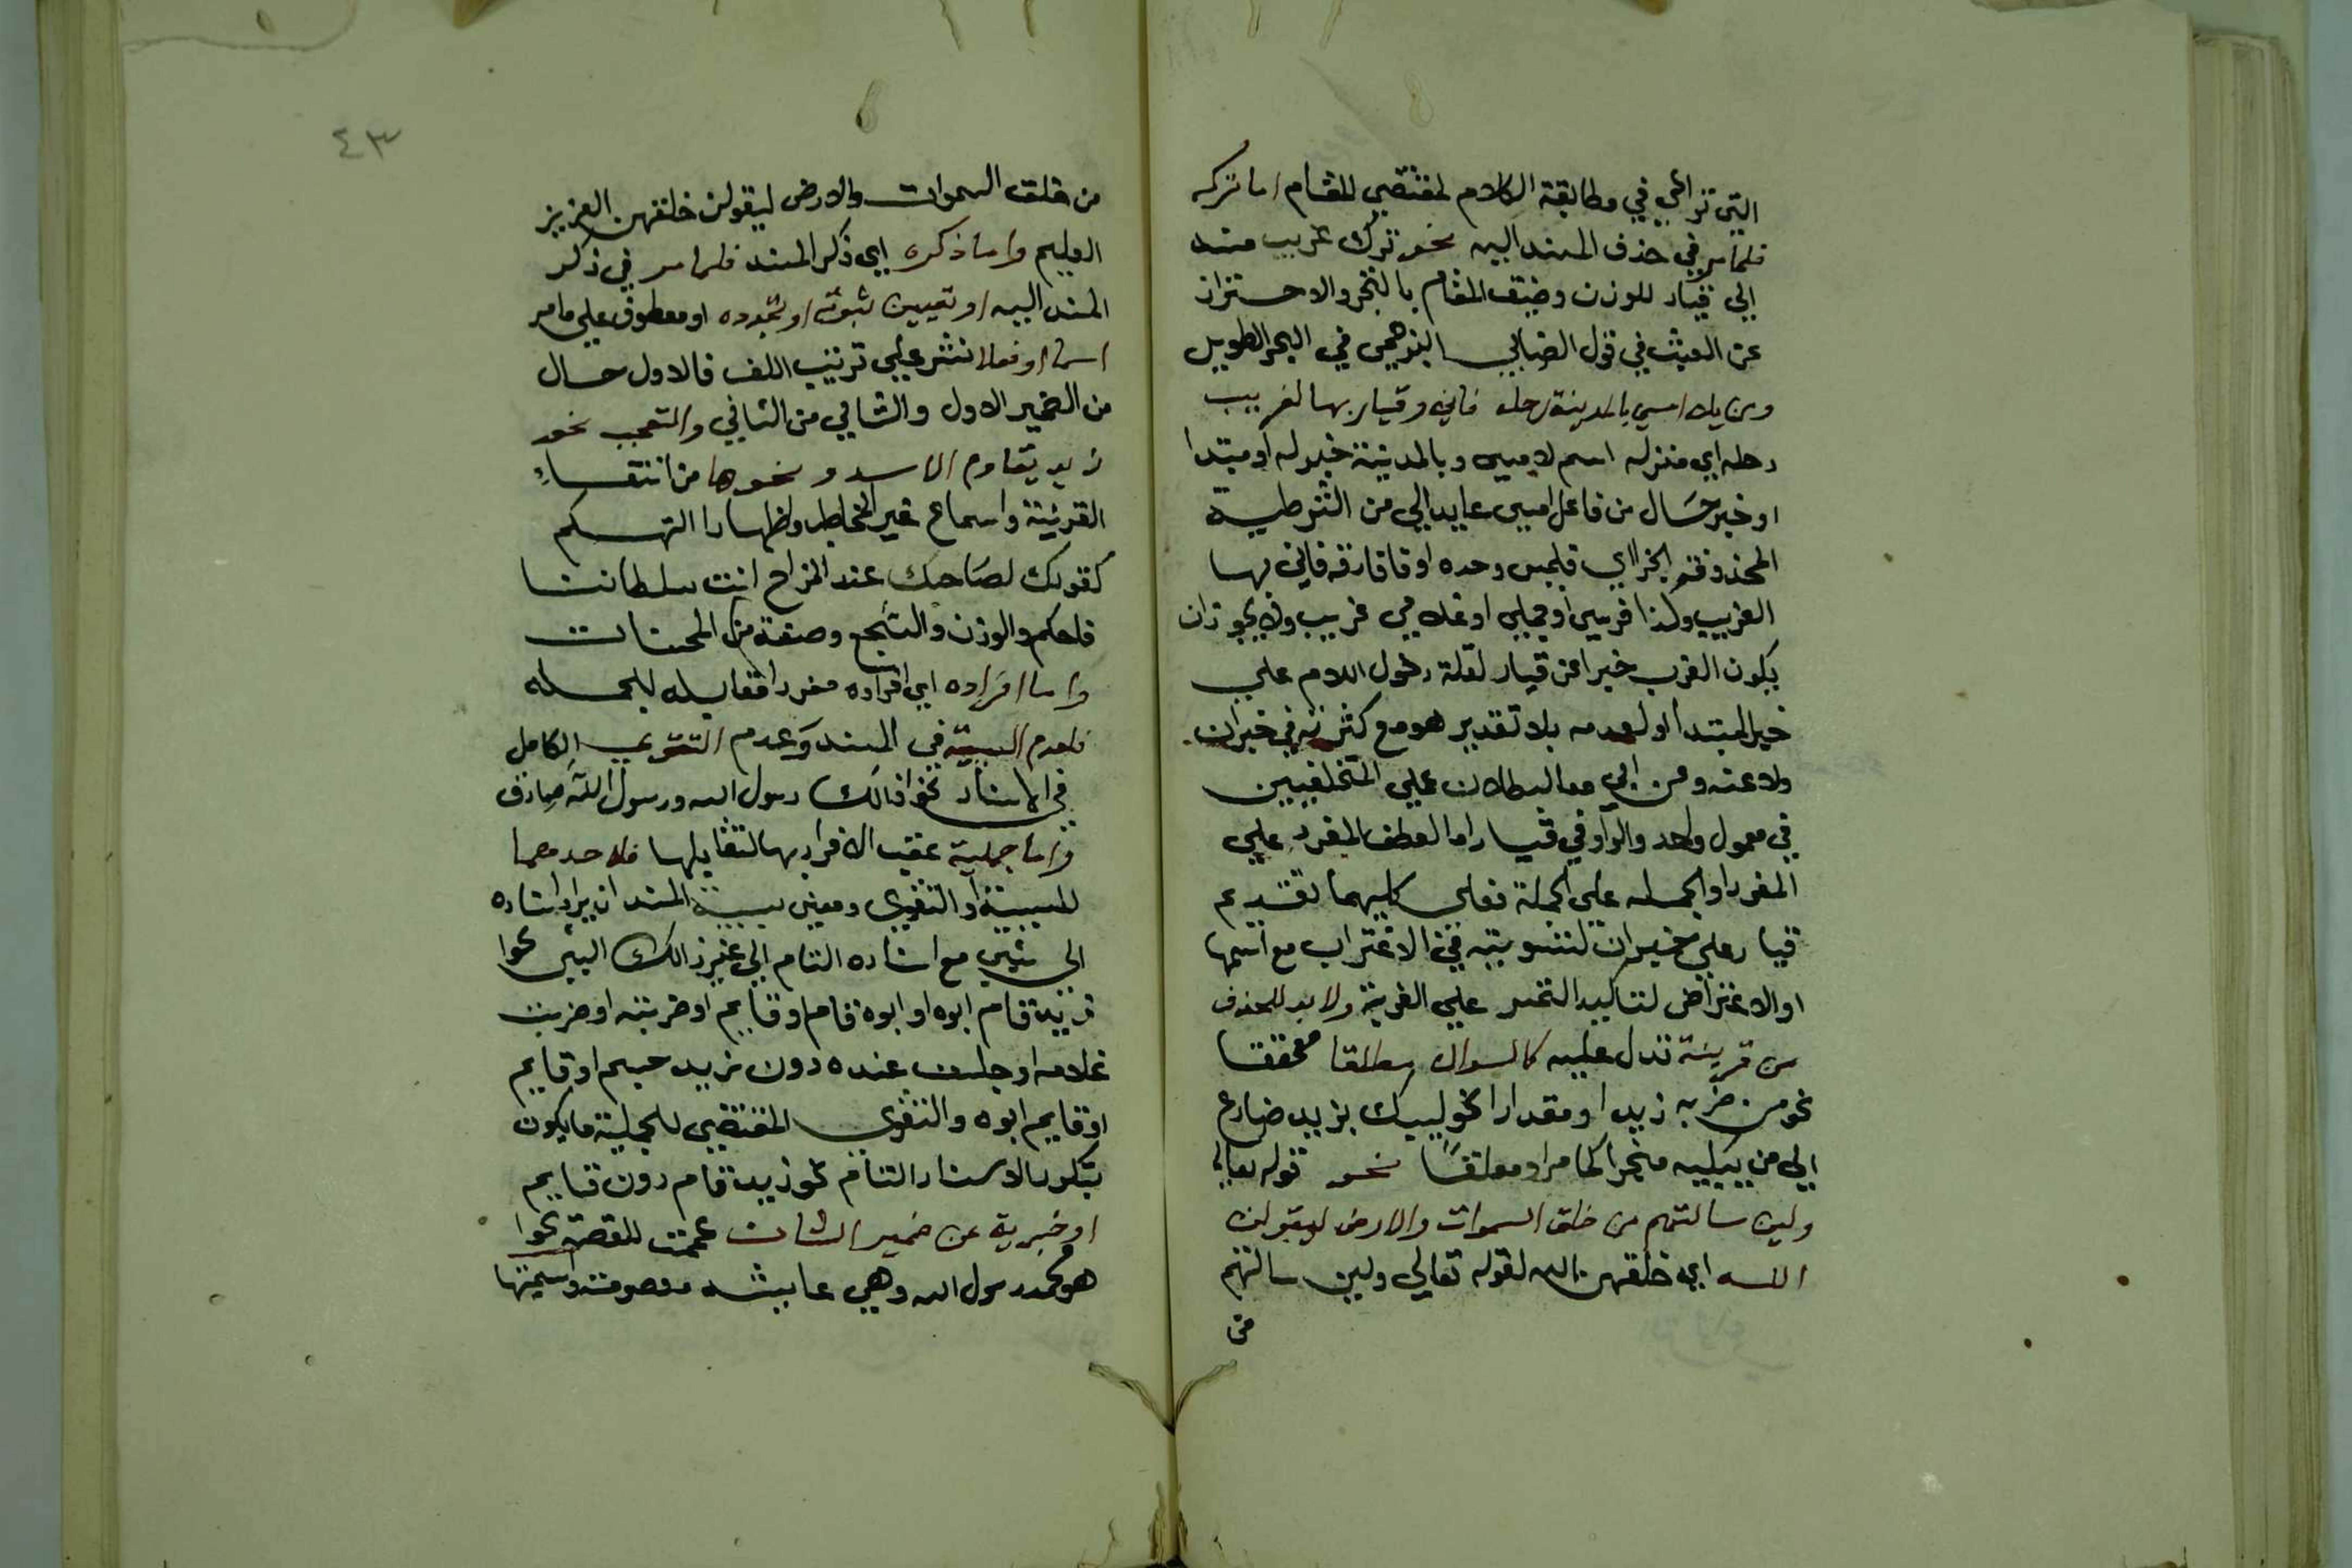 التي تراعي في مطابقة الكلام لمقتضي المقام اما تركه
فلما مر في حذف المسند اليه نحو ترك غريب مسند
الي قيار للوزن وضيق المقام بالتخر والاحتراز
عن العبث في قول الضابي البرهمي في البحر الطويل
ومن يك امسي بالمدينة رحله فاني وقيار بها لغريب
رحله اي منزله اسم لامسي وبالمدينة خبر له او مبتدا
او خبر حال من فاعل امسي عايد الي من الشرطية
المحذوفة الجزا اي فليمس وحده او فافارقه فاني بها
الغريب وكذا فرسي او جملي او غلامي غريب ولا يجوز ان
يكون الغريب خبرا عن قيار لقلة دخول اللام علي
خبر المبتدا او لعدمه بلا تقدير هو مع كثرته في خبر ان
ولا عنه ومن اني معا لبطلان علي المتخلفين
في معمول واحد والواو في قيار اما لعطف المفرد علي
المفرد او الجمله علي الجملة فعلي كليهما تقديم
قيار علي خبر ان لتسويته في الاغتراب مع اسمها
او الاعتراض لتاكيد التحسر علي الغربة ولا بد للحذف
من قرينة تدل عليه كالسوال مطلقا محققا
نحو من ضربه زيدا او مقدارا نحو ليبك يزيد ضارع
الي من يبكيه منجرا كما مر او معلقا نحو قوله تعالي
ولين سالتهم من خلق السموات والارض ليقولن
الله اي خلقهن الله لقوله تعالي ولين سالتهم
من
٤٣
من خلق السموات والارض ليقولن خلقهن العزيز
العليم واما ذكره اي ذكر المسند فلما مر في ذكر
المسند اليه او تعيين ثبوته او تجدده او معطوف علي ما مر
اسما او فعلا نشر علي ترتيب اللف فالاول حال
من الضمير الاول والثاني من الثاني والتعجب نحو
زيد يقاوم الاسد ونحوها من انتفاء
القرينة واسماع غير المخاطب واظهار التهكم
كقولك لصاحبك عند المزاح انت سلطاننا
فاحكم والوزن والتسجع وصنعة من المحسنات
واما افراده اي افراده مفردا فقابله للجمله
فلعدم السببية في المسند وعدم التقوي الكامل
في الاسناد نحو افالك رسول الله ورسول الله صادق
واما جملية عقب الافراد بها لتقابلها فلاحدهما
للسببية او التقوي ومعني سببية المسند ان يراد اسناده
الي شيي مع اسناده التام الي غير ذالك الشي نحوا
زيد قام ابوه او ابوه قام او قايم او ضربته او ضربت
غلامه او جلست عنده دون زيد جسم او قايم
او قايم ابوه والتقوي المقتضي للجملية ما يكون
بتكرر الاسناد التام نحو زيد قام دون قايم
او خبرية عن ضمير الشان عممت للقصة نحوا
هو محمد رسول الله وهي عايشه معصومة واسميتها